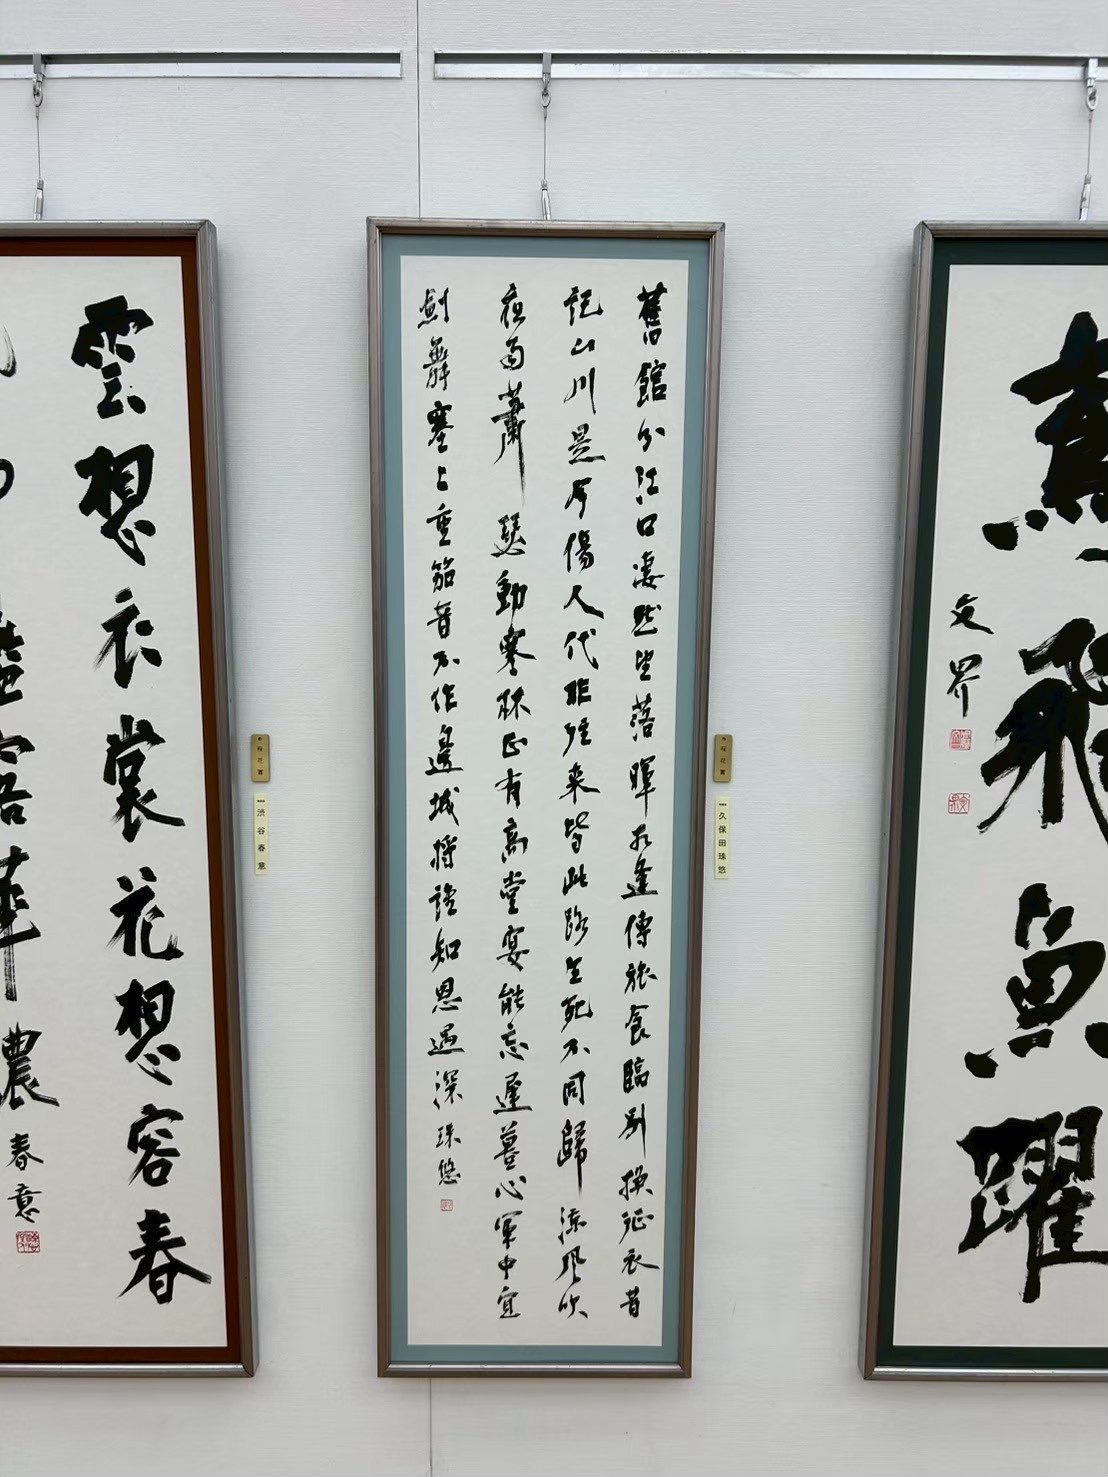 鳶飛魚躍
文界
舊館分江口凄然望落暉相逢傳旅食臨別換征衣昔
記山川是今傷人代非往來皆此路生死不同歸涼風吹
夜雨蕭瑟動寒林正有高堂宴能忘遲暮心軍中宜
劍舞塞上重笳音不作邊城將誰知恩遇深 珠悠
久保田珠悠
雲想衣裳花想容春
露華濃 春意
渋谷春意